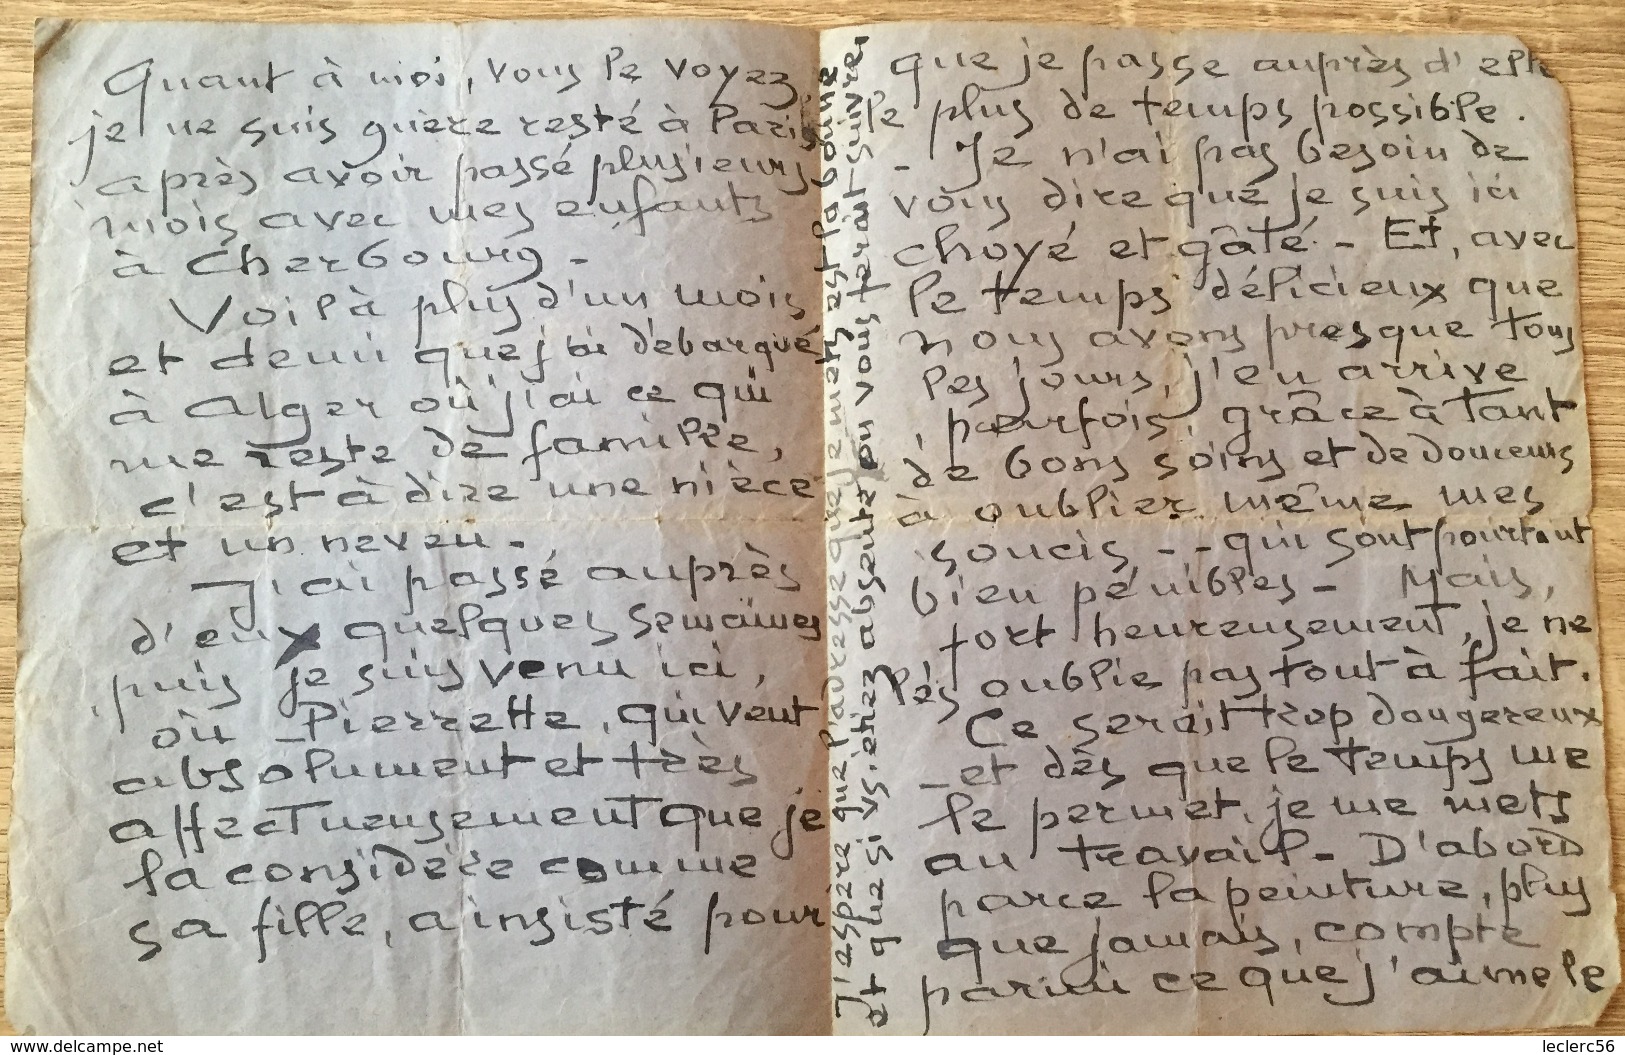 Quant à moi, vous le voyez,
je ne suis guère resté à Paris
après avoir passé plusieurs
mois avec mes enfants
à Cherbourg -
Voilà plus d'un mois
et demi que j'ai débarqué
à Alger où j'ai ce qui
me reste de famille,
c'est à dire une nièce
et un neveu -
J'ai passé auprès
d'eux quelques semaines
puis je suis venu ici,
où Pierrette, qui veut
absolument et très
affectueusement que je
la considère comme
sa fille, a insisté pour
J'espère que l'adresse que je mets est la bonne
et que si vs. étiez absente on vous ferait suivre
que je passe auprès d'elle
le plus de temps possible.
- Je n'ai pas besoin de
vous dire que je suis ici
choyé et gâté - Et, avec
le temps délicieux que
nous avons presque tous
les jours, j'en arrive
parfois, grâce à tant
de bons soins et de douceurs
à oublier même mes
soucis - - qui sont pourtant
bien pénibles - Mais,
fort heureusement, je ne
les oublie pas tout à fait.
Ce serait trop dangereux
- et dès que le temps me
le permet, je me mets
au travail - D'abord
parce la peinture, plus
que jamais, compte
parmi ce que j'aime le
www.delcampe.net
leclerc56